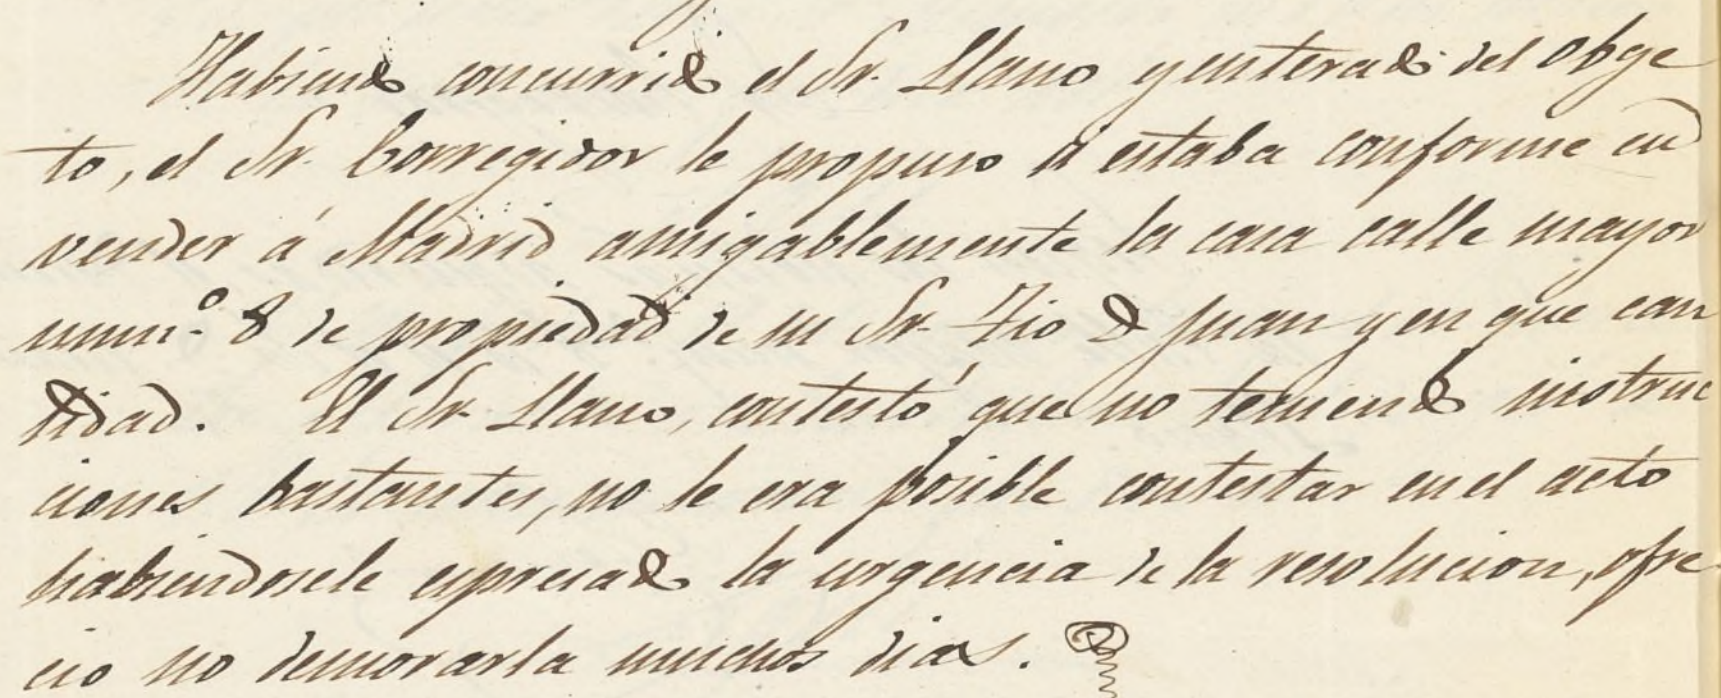 Habiendo concurrido el Sr. Llano y enterado del obge
to, el Sr. Corregidor le propuso si estaba conforme en
vender á Madrid amigablemente la casa calle mayor
num.º 8 de propiedad de su Sr. Tio D Juan y en que can
tidad. El Sr. Llano, contestó que no teniendo instruc
ciones bastantes, no le era posible contestar en el acto
habiendosele espresado la urgencia de la resolucion, ofre
cio no demorarla muchos dias.